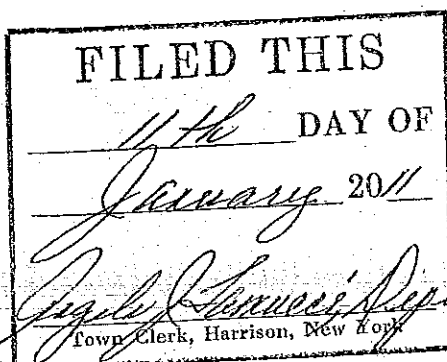 FILED THIS
11th DAY OF
January 2011
Dep
Town Clerk, Harrison, New York